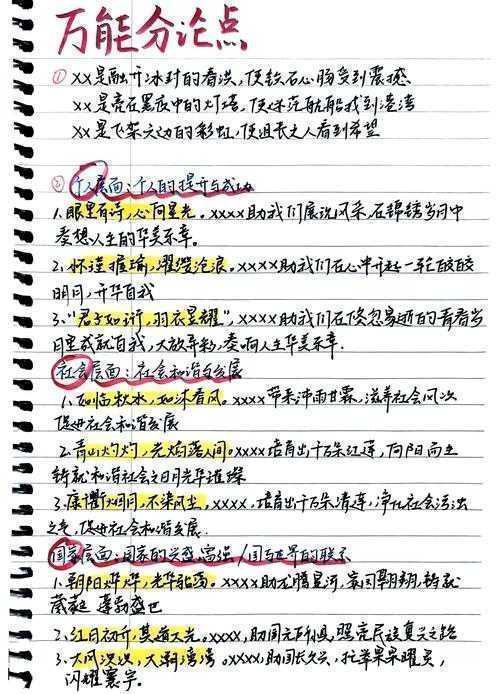 万能分论点
① XX是融开冰封的春洪,使铁石心肠受到震撼、
XX是亮在黑夜中的灯塔,使迷茫航船找到港湾
XX是飞架天边的彩虹,使沮丧之人看到希望
② 个人层面:个人的提升与成功
1.眼里有诗,心向星光。xxxx助我们展现风采,在锦绣岁月中
奏想人生的华美乐章。
2.怀瑾握瑜,濯缨沧浪。xxxx助我们在心中升起一轮皎皎
明月,升华自我
3."君子如珩,羽衣昱耀",xxxx助我们在倏忽易逝的青春岁
月里成就自我,大放异彩,奏响人生华美乐章.
社会层面:社会和谐与发展
1.如临秋水,如沐春风。xxxx带来沛雨甘霖,滋养社会风
促进社会和谐发展
2.青山灼灼,光焰落人间。xxxx培育出千朵红莲,向阳而生
铸就和谐社会之日月光华璀璨
3.康衢烟月,不染风尘,xxxx,培育出千朵清莲,净化社会污浊
之气,促进社会和谐发展.
国家层面:国家的兴盛富强/国与世界的联系
1.朝阳烨烨,光华骀荡。xxxx助龙腾星河,家国翱翔,铸就
葳蕤 蓬勃盛世
2.红日初升,其道大光。xxxx,助国无所惧,照亮民族复兴之路
3.大风泱泱,大潮滂滂。xxxx,助国长久兴,
闪耀寰宇。